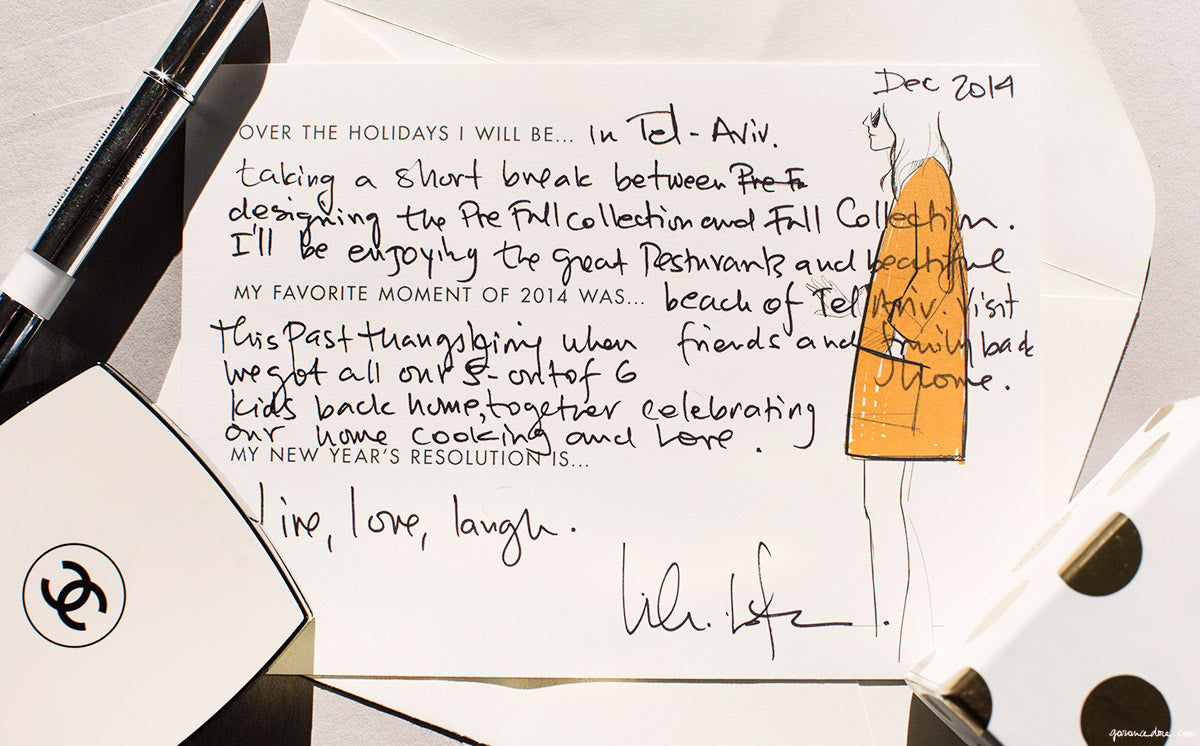 Dec 2014
OVER THE HOLIDAYS I WILL BE... in Tel-Aviv.
taking a short break between Pre Fa
designing the Pre Fall collection and Fall Collection.
I'll be enjoying the great Resturants and beatiful
MY FAVORITE MOMENT OF 2014 WAS... beach of Tel Aviv. Visit
friends and family back
home.
This past thangsgiving when
we got all our 5-out of 6
kids back home, together celebrating
our home cooking and Love.
MY NEW YEAR'S RESOLUTION IS...
live, love, laugh.
Quick Fix Illuminator
garancedore.com